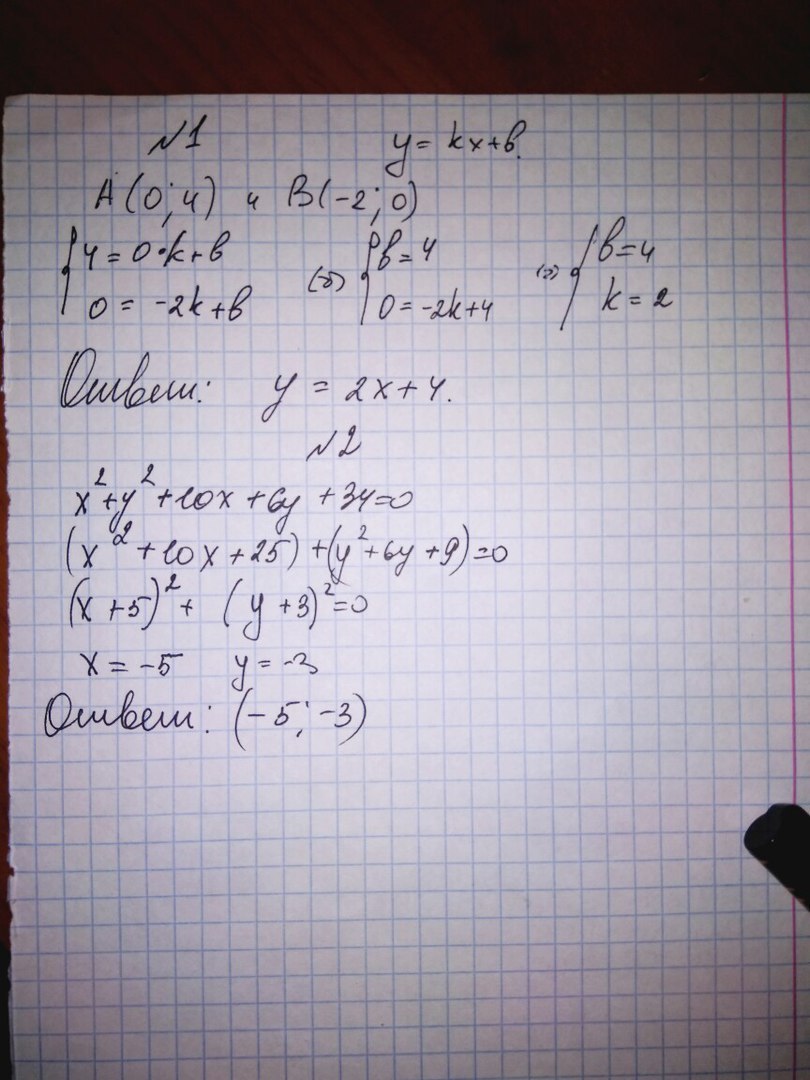 №1 y = kx+b.
A(0;4) и B(-2;0)
{4 = 0·k+b (⇔) {b=4 (⇔) {b=4
0 = -2k+b 0=-2k+4 k = 2
Ответ: y = 2x+4.
№2
x²+y²+10x+6y+34=0
(x²+10x+25)+(y²+6y+9)=0
(x+5)²+(y+3)²=0
x=-5 y=-3
Ответ: (-5;-3)